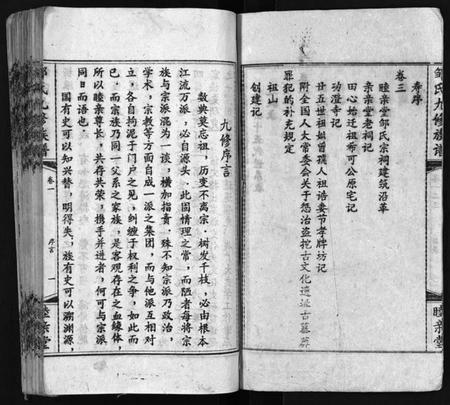 邹氏九修族谱
睦亲堂
寿序
卷三
睦亲堂邹氏宗祠建筑沿革
亲亲堂老祠记
田心始迁祖希可公原宅记
功澄寺记
廿五世祖妣曾孺人祖诰妻节孝牌坊记
附全国人大常委会关于惩治盗挖古文化遗址古墓葬
罪犯的补充规定
祖山
创建记
九修序言
数典莫忘祖，历变不离宗。树发千枝，必由根本
江流万派，必自源头。此固情理之常，而陋者每将宗
族与宗派混为一谈，横加指责，殊不知宗派乃政治，
学术，宗教等方面自成一派之集团，而与他派互相对
立，各自拘泥于门户之见，纠缠于权利之争，如此而
已。而宗族乃同一父系之家族，是客观存在之血缘体，
所以睦亲尊长，共存共荣，携手并进者，何可与宗派
同日而语也。
国有史可以知兴替，明得失，族有史可以溯渊源，
邹氏九修族谱
卷一
序言
一
睦亲堂